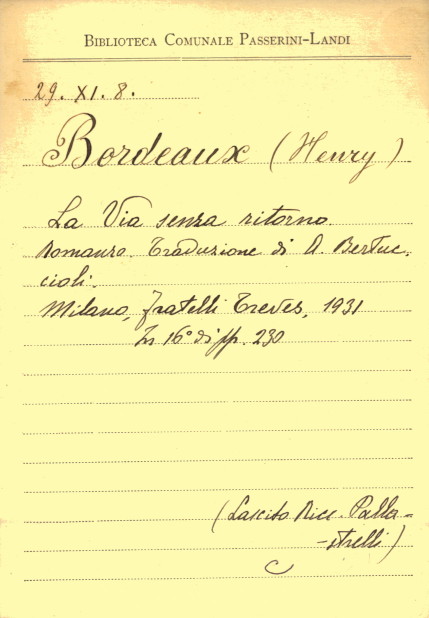 BIBLIOTECA COMUNALE PASSERINI-LANDI
29. XI. 8.
Bordeaux (Henry)
La Via senza ritorno.
Romanzo. Traduzione di A. Bertuc-
cioli.
Milano, fratelli Treves, 1931
In 16° di pp. 230
(Lascito Ricc. Palla-
-strelli)
C